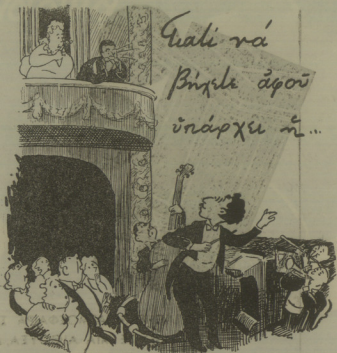 Γιατί νά
βήχετε ἀφοῦ
ὑπάρχει ἡ...